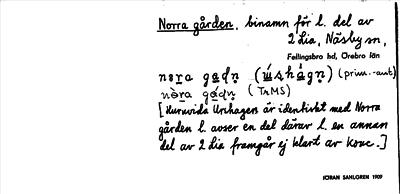 Norra gården, binamn för l. del av
2 Lia, Näsby sn,
Fellingsbro hd, Örebro län
(prim.-ant)
(TrMS)
[Huruvida Urshagen är identiskt med Norra
gården l. avser en del därav l. en annan
del av 2 Lia framgår ej klart av konc.]
JÖRAN SAHLGREN 1909